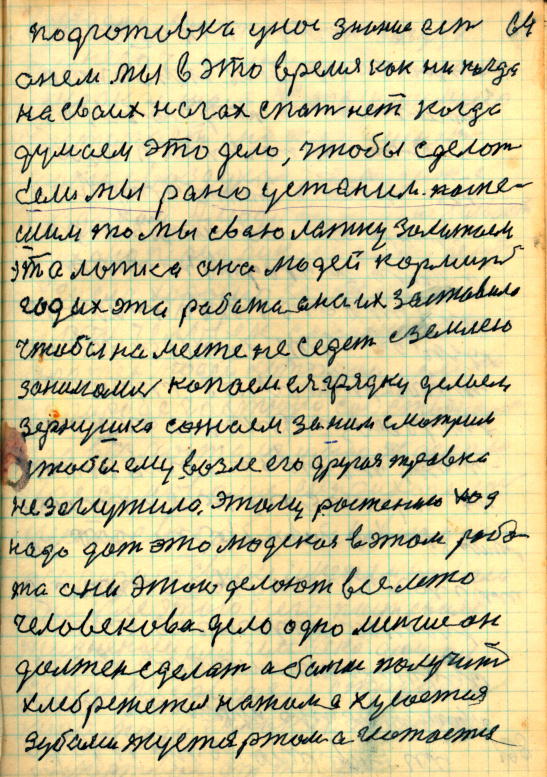 подготовка унас знание есть 64
онем мы в это время как ни когда
на своих ногах спат нет когда
думаем это дело, чтобы сделот
если мы рано устаним. поспе-
шим то мы сваю латку залатаем
эта латка она людей кормит
годых эта работа она их заставило
чтобы на месте не седет с землею
занимаемся копаем ея грядку делаем
зернушко сожаем за ним смотрим
чтобы ему возле его другая травка
не заглужило. этому растению ход
надо дат это людская в этом рабо-
та они этою делают все лето
человекова дело одно лично он
должен сделат а батом получит
хлеб режется нажом а кусается
зубами жуется ртом а глотается